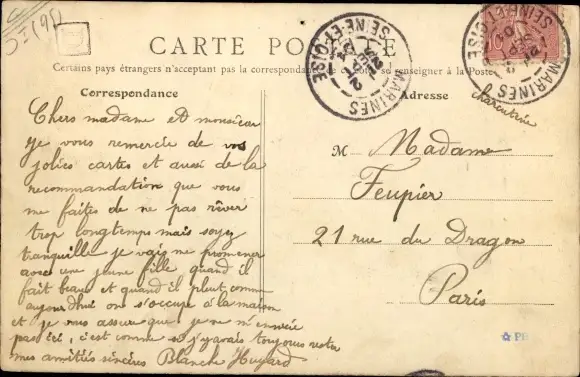 CARTE POSTALE
Certains pays étrangers n'acceptant pas la correspondance se renseigner à la Poste
Correspondance
Adresse
MARINES
SEINE-ET-OISE
MARINES
SEINE-ET-OISE
charcuterie
Chers madame et monsieur
je vous remercie de vos
jolies cartes et aussi de la
recommandation que vous
me faites de ne pas rêver
trop longtemps mais soyez
tranquille je vais me promener
avec une jeune fille quand il
fait beau et quand il pleut comme
aujourdhui on s'occupe à la maison
et je vous assure que je ne m'ennuie
pas ici, c'est comme si j'y avais toujours
mes amitiés sincères Blanche Huyard
M Madame
Feupier
21 rue du Dragon
Paris